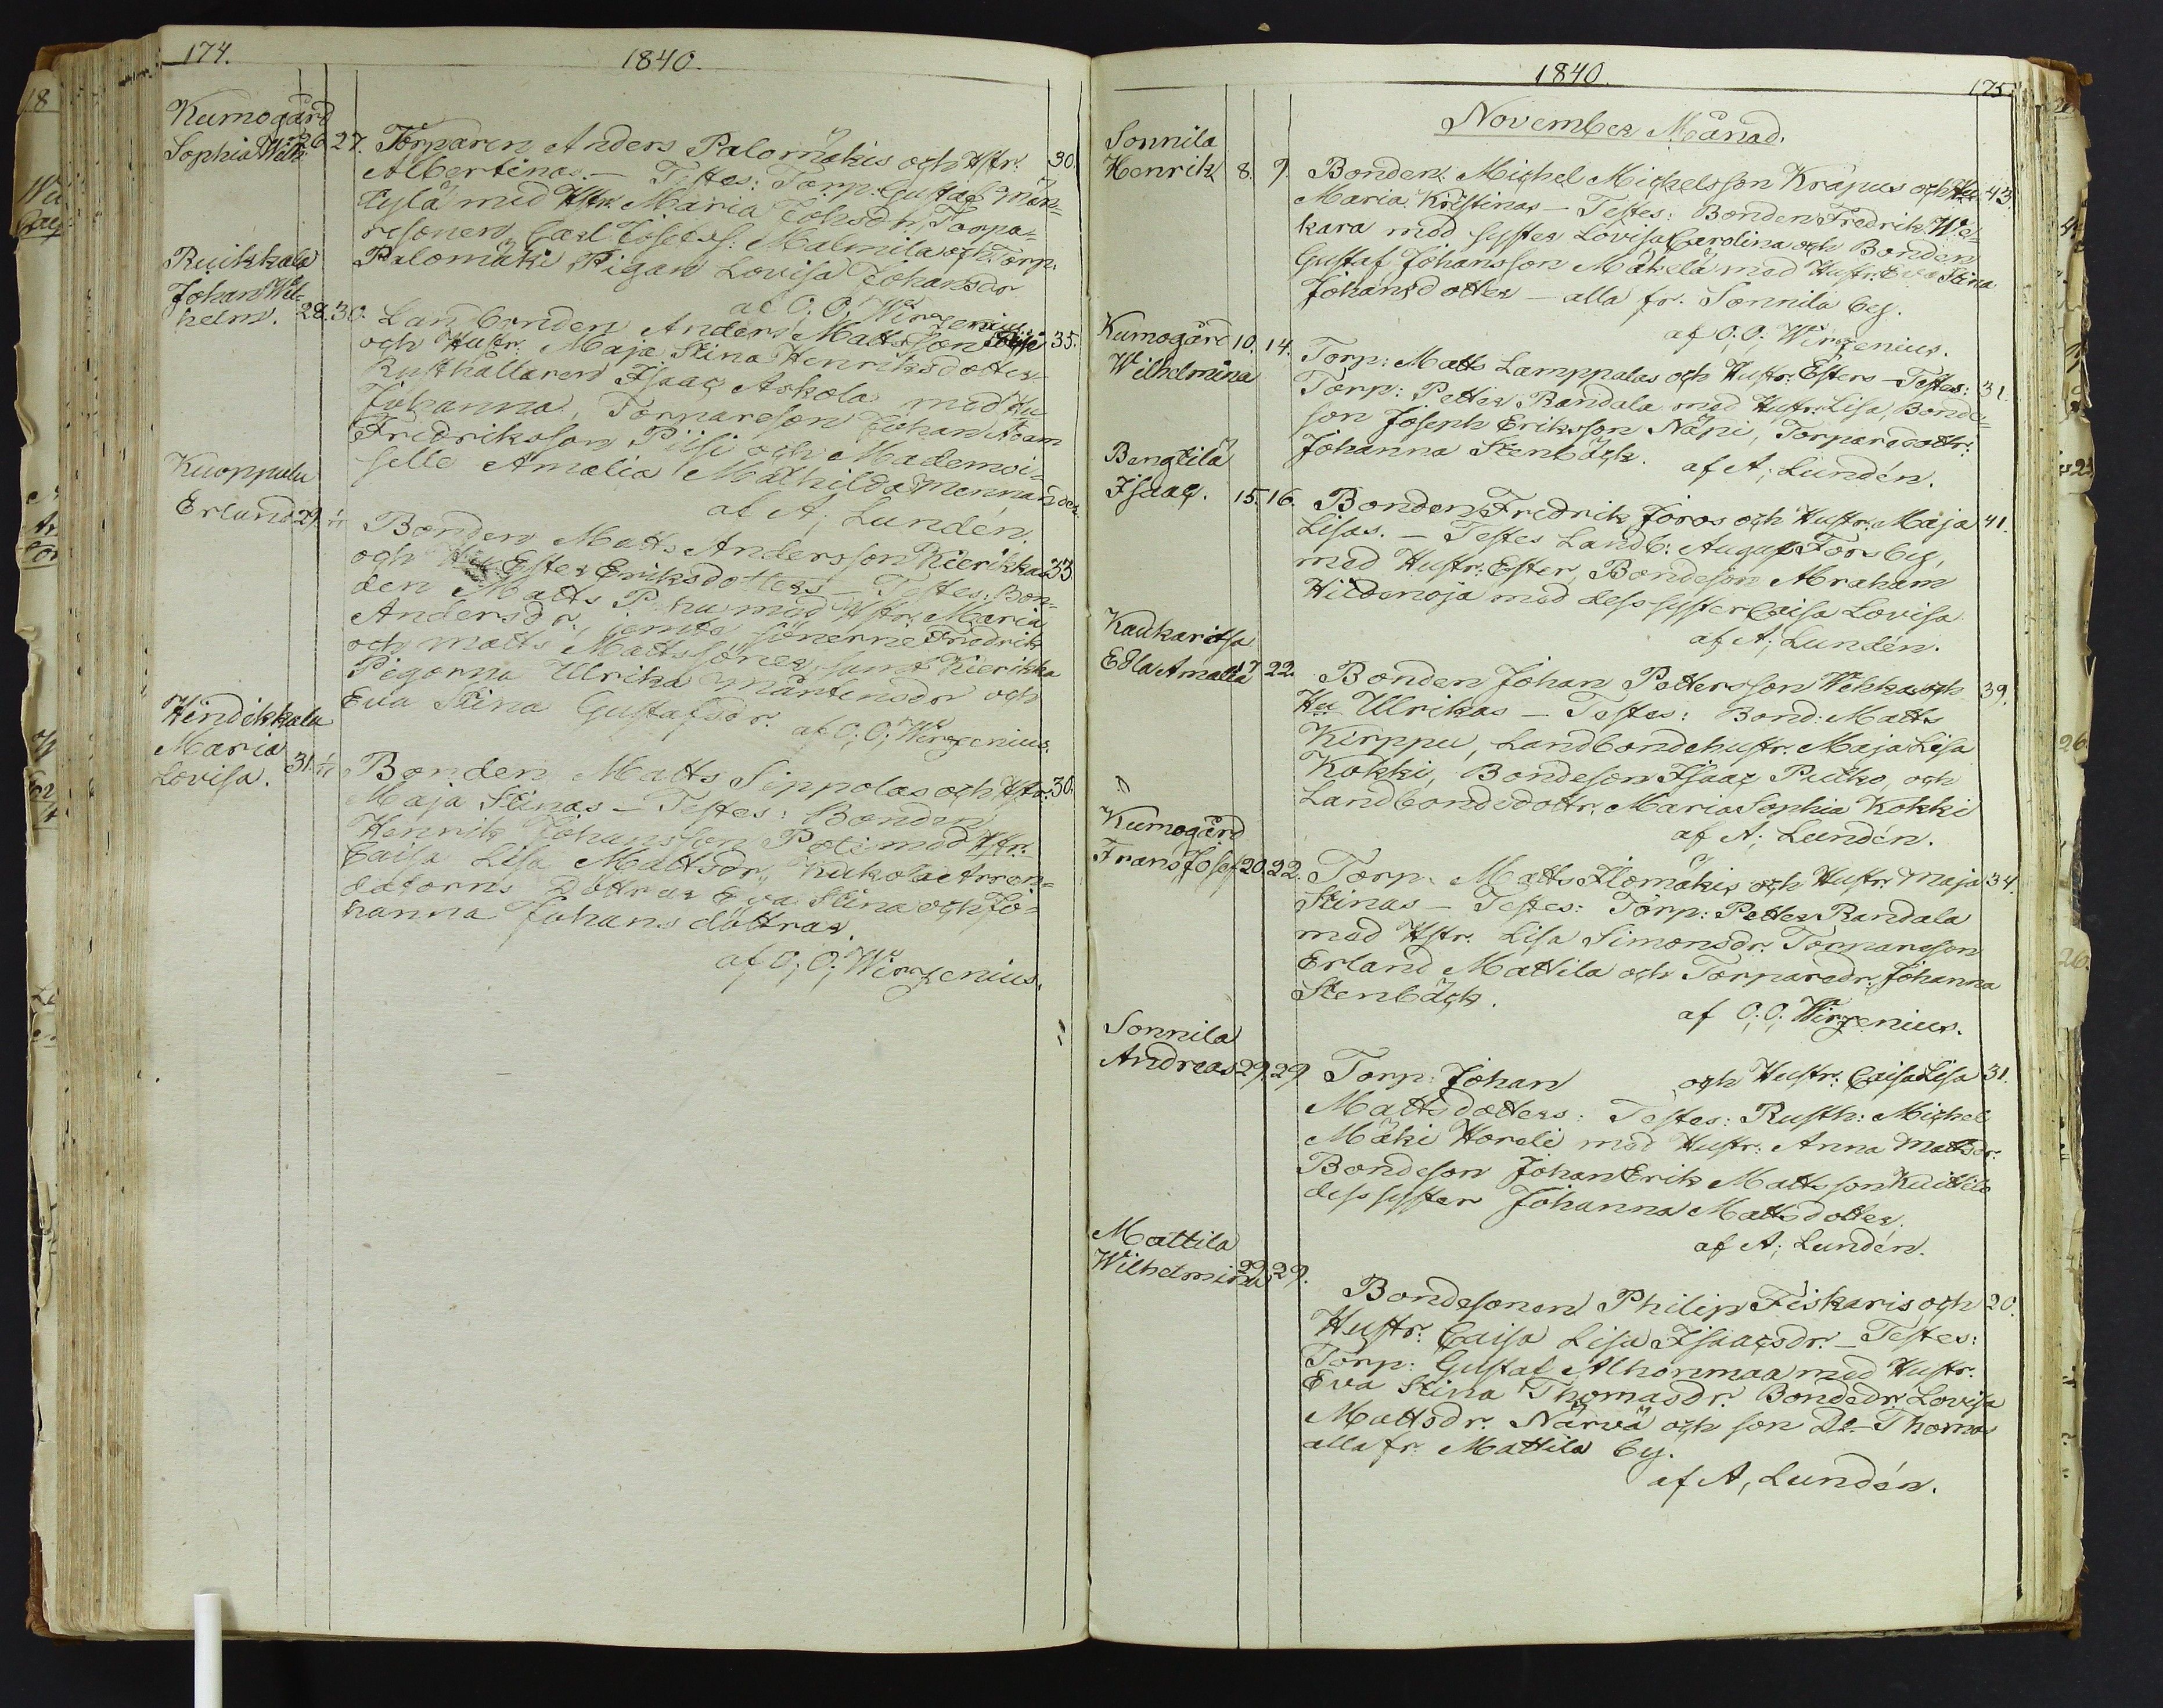 174.
1840.
Kumogård
Sophia Wilh: 26. 27. Torparen Anders Palomäkis och Hstr: 30.
Albertinas. — Testes: Torp: Gustaf
med Hstr. Maria Johsdr, Torpa=
resonen Carl Josefss: Malmila och Torp.
Palomäki Pigan Lovisa Johansdr
af O; O; Wirzenius.
Ruikkala
Johan Wil=
helm. 28. 30. Landbonden Anders Mattsson 35.
och Hustr. Maja Stina Henriksdotters
Rusthållaren Isaac Askola med Hu
Johanna, Torpareson Johan Adam
Fredriksson Piisi och Mademoi=
selle Amalia Mathilda Mennander
af A; Lundén.
Kuoppala
Erland 29. Bonden Matts Andersson Kierikkas 33
och Ester Eriksdotters — Testes: Bon=
den Matts med Hstr. Maria
Andersdr, jemte sönerne Fredrik
och Matts Mattssöner, samt Kierikka
Pigorna Ulrika Mårtensdr och
Eva Stina Gustafsdr. af O; O; Wirzenius.
Hindikkala
Maria
Lovisa. 31. Bonden Matts Sippolas och Hstr: 30.
Maja Stinas — Testes: Bonden
Henrik Johansson Poti med Hstr.
Caisa Lisa Mattsdr, Kukola Arren=
datorns Döttrar Eva Stina och Jo=
hanna Johansdöttrar.
af O; O; Wirzenius.
1840.
175.
November Månad.
Sonnila
Henrik 8. 9. Bonden Michel Michelsson Krapus och Hu 43.
Maria Kristinas — Testes: Bonden Fredrik We=
kara med syster Lovisa Carolina och Bonden
Gustaf Johansson Mäkelä med Hustr: Eva Stina
Johansdotter — alla fr. Sonnila by.
af O; O; Wirzenius.
Kumogård 10. 14. Torp: Matts Lamppalas och Hustr: Esters — Testes: 31.
Wilhelmina
Torp: Petter Randala med Hustr: Lisa, Bonde=
son Joseph Eriksson Näpi, Torparedottr:
Johanna Stenbäck. af A; Lundén.
Bengtilä
Isaac. 15. 16. Bonden Fredrik Joros och Hustr: Maja 41.
Lisas. — Testes Landb: August Fors by,
med Hustr: Ester, Bondeson Abraham
Hildenoja med dess syster Caisa Lovisa
af A; Lundén.
Kaukaritsa
Edla Amalia 22. Bonden Johan Pettersson Wekkas och 39.
Hu Ulrikas — Testes: Bond: Matts
Kirppu, Landbondehustr. Maja Lisa
Kokki, Bondeson Isaac Pulko, och
Landbondedottr. Maria Sophia Kokki
af A; Lundén.
Kumogård
Frans Josef 20. 22. Torp: Matts Ilomäkis och Hustr: Maja 34.
Stinas — Testes: Torp: Petter Randala
med Hstr. Lisa Simonsdr. Torpareson
Erland Mattila och Torparedr. Johanna
Stenbäck.
af O; O; Wirzenius.
Sonnila
Andreas 29. 29. Torp: Johan och Hustr: Caisa Lisa 31.
Mattsdotters: Testes: Rusth: Michel
Mäki Horeli med Hustr: Anna Mattsdr.
Bondeson Johan Erik Mattsson
dess syster Johanna Mattsdotter.
af A; Lundén.
Mattila
Wilhelmina 29. 29.
Bondesonen Philip Fiskaris och 20.
Hustr: Caisa Lisa Isaacsdr. — Testes:
Torp: Gustaf Alhonmaa med Hustr.
Eva Stina Thomasdr. Bondedr. Lovisa
Mattsdr. Närvä och son Thomas
alla fr. Mattila by.
af A; Lundén.